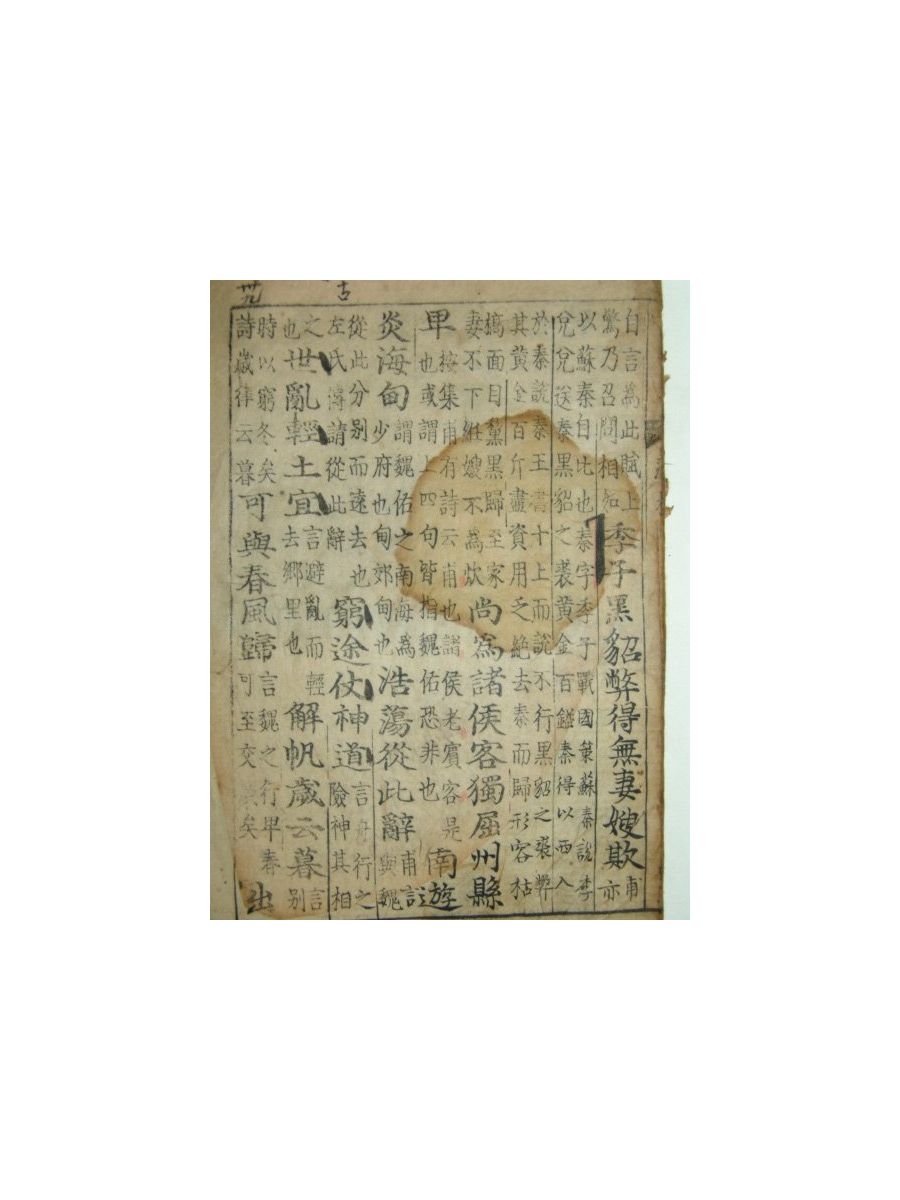 自言為此賦上
驚乃召問相如
季子黑貂弊得無妻嫂欺
甫
亦
以蘇秦自比也秦字季子戰國策蘇秦說李
兌兌送秦黑貂之裘黃金百鎰秦得以西入
於秦說秦王書十上而說不行黑貂之裘弊
其黃金百斤盡資用乏絶去秦而歸形容枯
槁面目黧黑歸至家
妻不下絍嫂不為炊
尚為諸侯客獨屈州縣
卑
按集甫有詩云甫也諸侯老賓客是
也或謂上四句皆指魏佑恐非也
南遊
炎海甸
謂魏佑之南海為
少府也甸郊甸也
浩蕩從此辭
甫言
與魏
從此分别而遠去也
左氏傳請從此辭
窮途仗神道
言舟行之
險神其相
之
也
世亂輕土宜
言避亂而輕
去鄉里也
解帆歲云暮
言
别
時以窮冬矣
詩歲律云暮
可與春風歸
言魏之行畢春
可至交矣
出
古